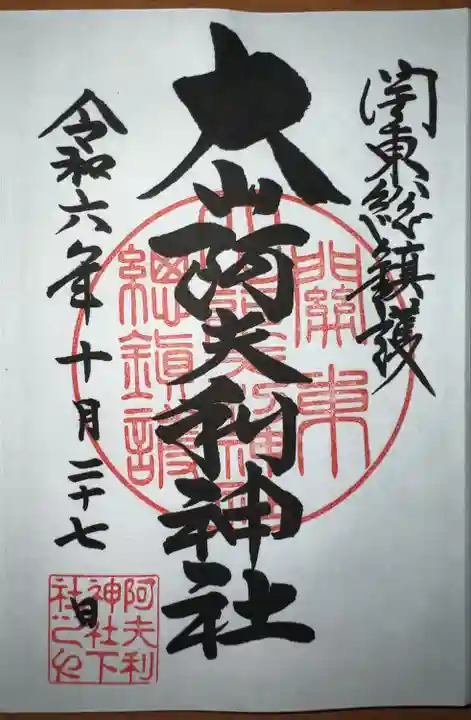 関東総鎮護
大山阿夫利神社
令和六年十月二十七日
關東
總鎮護
阿夫利
神社下
社之印